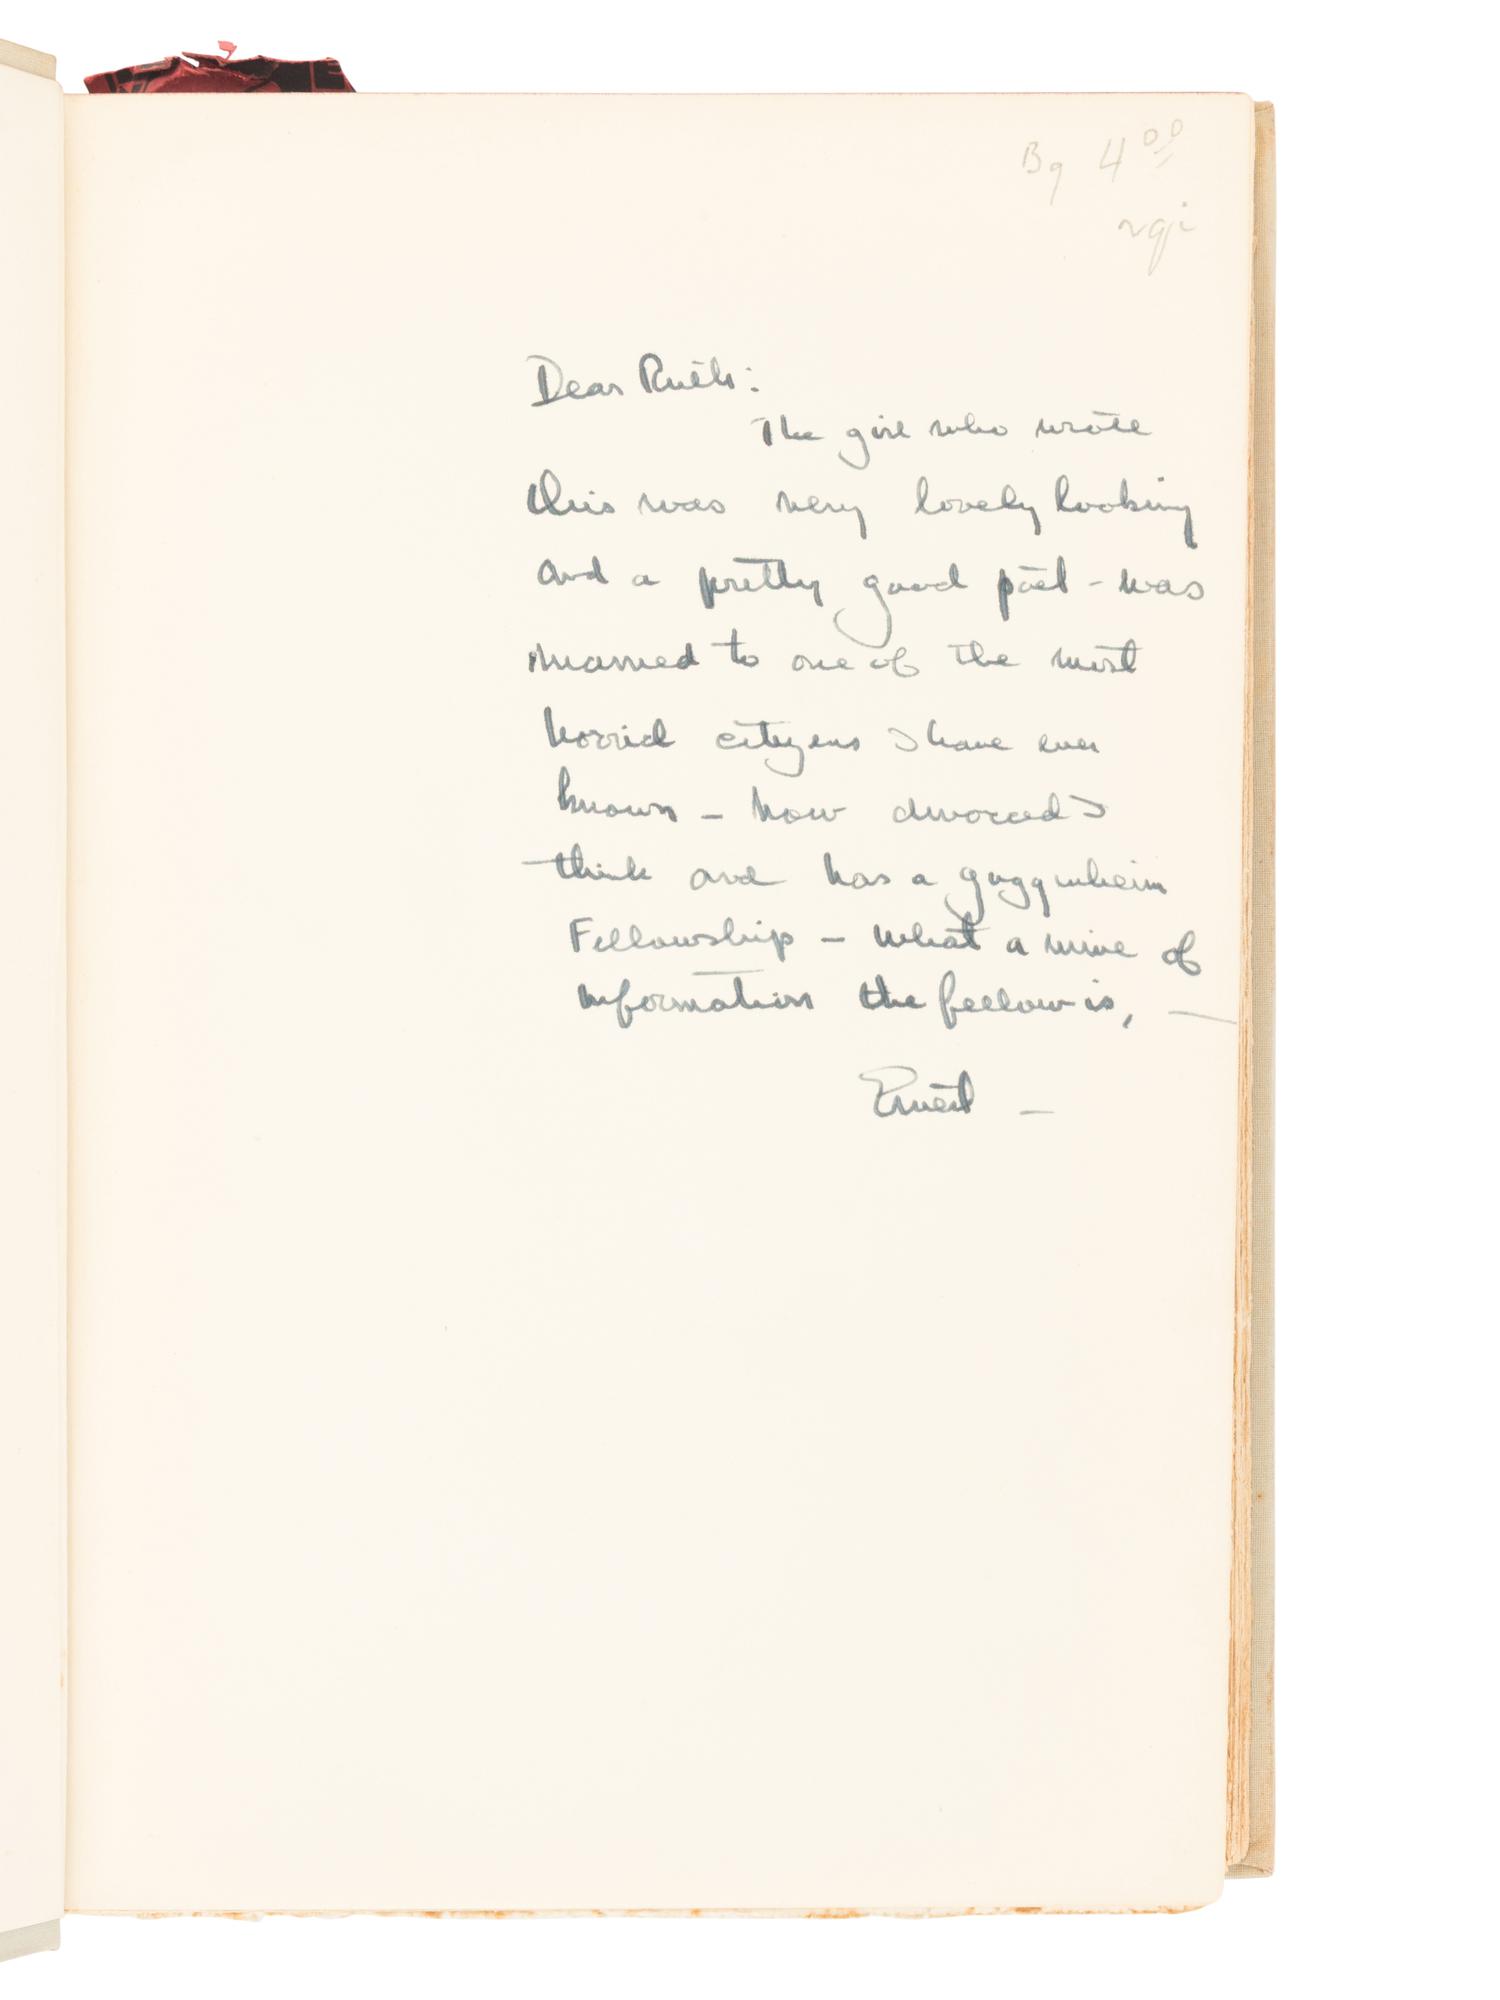 Bq 4 00
Dear Ruth:
The girl who wrote
this was very lovely looking
and a pretty good poet - was
married to one of the most
horrid citizens I have ever
known - now divorced I
think and has a Guggenheim
Fellowship - what a mine of
information the fellow is, —
Ernest —